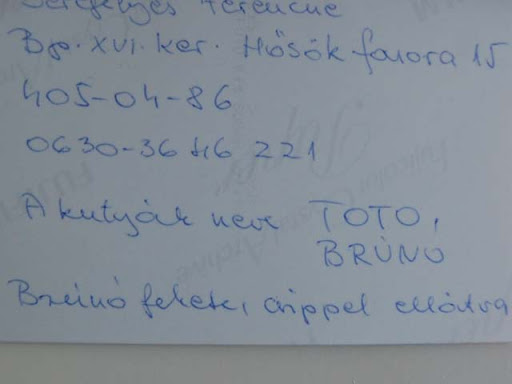 Serfenyes Ferencné
Bp. XVI. ker. Hősök fasora 15
405-04-86
0630-36 46 221
A kutyák neve TOTO,
BRÚNO
Brúnó fekete, chippel ellátva